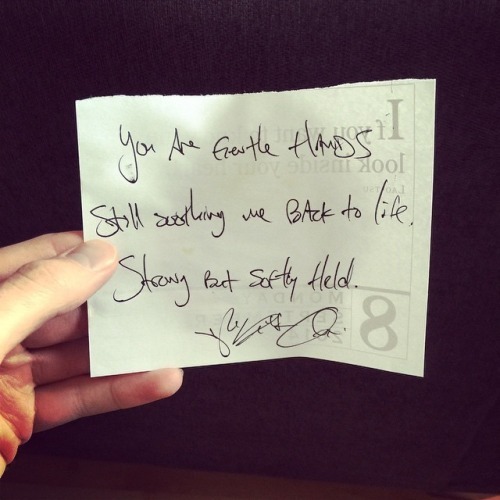 You Are Gentle HANDS
Still soothing me BAck to life.
Strong But Softly Held.
If you want to
look inside your
LAO TZU
MONDAY
8